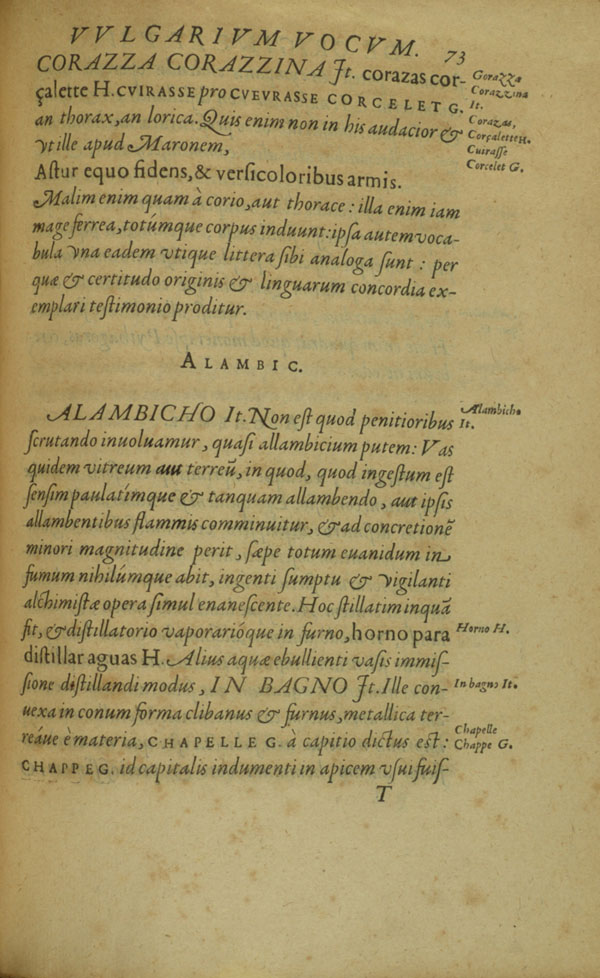 VVLGARIVM VOCVM. 73
CORAZZA CORAZZINA It. corazas cor-
çalette H. CVIRASSE pro CVEVRASSE CORCELET G.
an thorax, an lorica. Quis enim non in his audacior &
vt ille apud Maronem,
Astur equo fidens, & versicoloribus armis.
Malim enim quam à corio, aut thorace: illa enim iam
mage ferrea, totúmque corpus induunt: ipsa autem voca-
bula vna eadem vtique littera sibi analoga sunt: per
quæ & certitudo originis & linguarum concordia ex-
emplari testimonio proditur.
Corazza
Corazzina
It.
Corazas,
Corçalette H.
Cuirasse
Corcelet G.
ALAMBIC.
ALAMBICHO It. Non est quod penitioribus
scrutando inuoluamur, quasi allambicium putem: Vas
quidem vitreum aut terreũ, in quod, quod ingestum est
sensim paulatimque & tanquam allambendo, aut ipsis
allambentibus flammis comminuitur, & ad concretionẽ
minori magnitudine perit, sæpe totum euanidum in
fumum nihilúmque abit, ingenti sumptu & vigilanti
alchimistæ opera simul enanescente. Hoc stillatim inquã
fit, & distillatorio vaporarióque in furno, horno para
distillar aguas H. Alius aquæ ebullienti vasis immis-
sione distillandi modus, IN BAGNO It. Ille con-
uexa in conum forma clibanus & furnus, metallica ter-
reáue è materia, CHAPELLE G. à capitio dictus est:
CHAPPE G. id capitalis indumenti in apicem vsui fuis-
Alambicho
It.
Horno H.
In bagno It.
Chapelle
Chappe G.
T